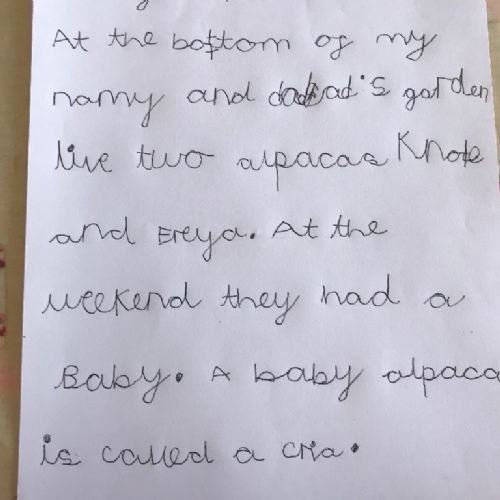 At the bottom of my
namy and dad's garden
live two alpacas
and Ereya. At the
weekend they had a
Baby. A baby alpaca
is called a cria.